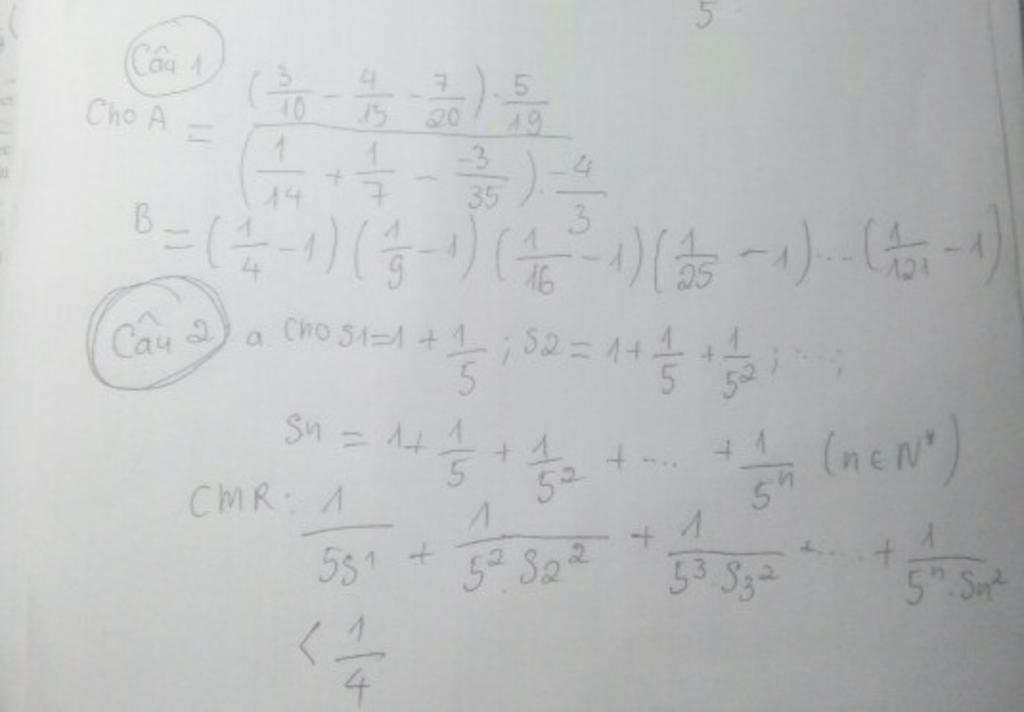 5
Câu 1
Cho A = ((3/10 - 4/15 - 7/20) · 5/19) / ((1/14 + 1/7 - -3/35) · -4/3)
B = (1/4 - 1) (1/9 - 1) (1/16 - 1) (1/25 - 1) ... (1/121 - 1)
Câu 2 a Cho S1=1 + 1/5 ; S2 = 1 + 1/5 + 1/5² ; ...;
Sn = 1 + 1/5 + 1/5² + .... + 1/5ⁿ (n ∈ N*)
CMR: 1/5S1 + 1/5².S2² + 1/5³.S3² + .... + 1/5ⁿ.Sn²
< 1/4